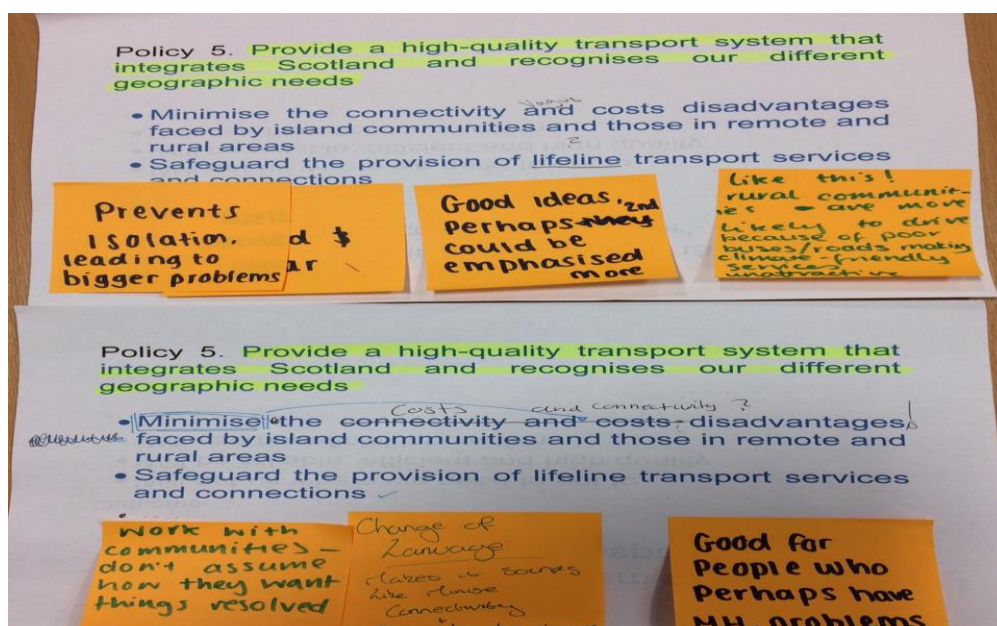 Policy 5. Provide a high-quality transport system that
integrates Scotland and recognises our different
geographic needs
• Minimise the connectivity and costs disadvantages
faced by island communities and those in remote and
rural areas
• Safeguard the provision of lifeline transport services
and connections
?
Prevents
Isolation.
leading to
bigger problems
$
Good ideas,
Perhaps they 2nd
could be
emphasised
more
Like this!
rural communit-
ies - are more
likely to drive
because of poor
buses/roads making
climate-friendly
services
unattractive
Policy 5. Provide a high-quality transport system that
integrates Scotland and recognises our different
geographic needs
Costs and connectivity ?
• Minimise the connectivity and costs disadvantages
faced by island communities and those in remote and
rural areas
• Safeguard the provision of lifeline transport services
and connections
Work with
communities -
don't assume
how they want
things resolved
Change of
Lanuage
Makes it sounds
like
Connectivity
Good for
People who
Perhaps have
MH problems